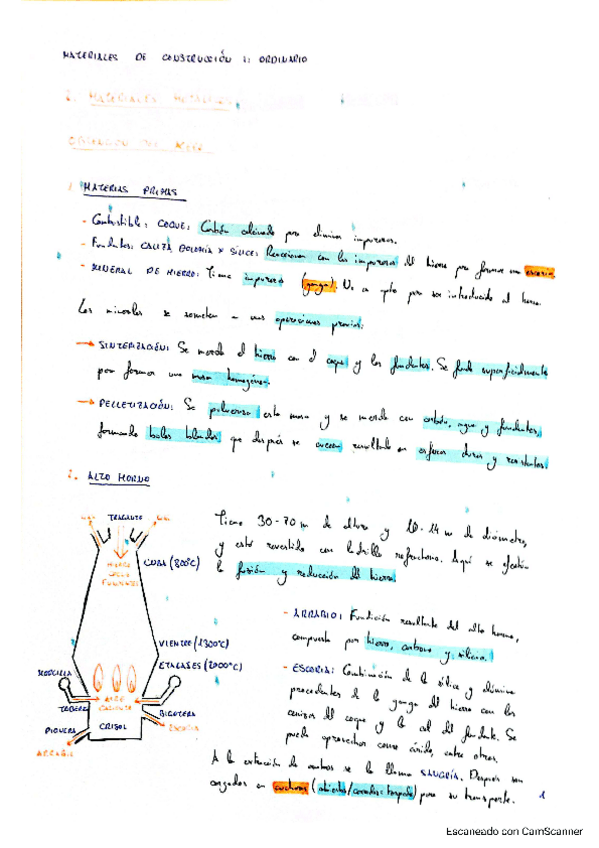 MATERIALES DE CONSTRUCCIÓN I: ORDINARIO
2. MATERIALES METÁLICOS
OBTENCIÓN DEL ACERO
1. MATERIAS PRIMAS
- Combustible: COQUE: Carbón calcinado para eliminar impurezas.
- Fundentes: CALIZA DOLOMÍA Y SÍLICE: Reaccionan con las impurezas del hierro para formar una escoria
- MINERAL DE HIERRO: Tiene impurezas (ganga). No es apto para ser introducido al horno.
Los minerales se someten a unas operaciones previas:
→ SINTERIZACIÓN: Se mezcla el hierro con el coque y los fundentes. Se funde superficialmente
para formar una masa homogénea.
→ PELLETIZACIÓN: Se pulveriza esta masa y se mezcla con carbón, agua y fundentes,
formando bolas blandas que después se cuecen resultando en esferas duras y resistentes.
2. ALTO HORNO
Tiene 30-70 m de altura y 10-14 m de diámetro,
y está revestido con ladrillo refractario. Aquí se efectúa
la fusión y reducción del hierro
GAS TRAGANTE GAS
HIERRO
COQUE
FUNDENTES
CUBA (800ºC)
VIENTRE (1300ºC)
ETALAJES (2000ºC)
MORCILLA
TOBERA
AIRE
CALIENTE
BIGOTERA
ESCORIA
PIQUERA
CRISOL
ARRABIO
- ARRABIO: Fundición resultante del alto horno,
compuesta por hierro, carbono y silicio.
- ESCORIA: Combinación de la sílice y alúmina
procedentes de la ganga del hierro con las
cenizas del coque y la cal del fundente. Se
puede aprovechar como árido, entre otros.
A la extracción de ambos se le llama SANGRÍA. Después son
cargados en cucharas (abiertas/cerradas: torpedo) para su transporte.
1
Escaneado con CamScanner